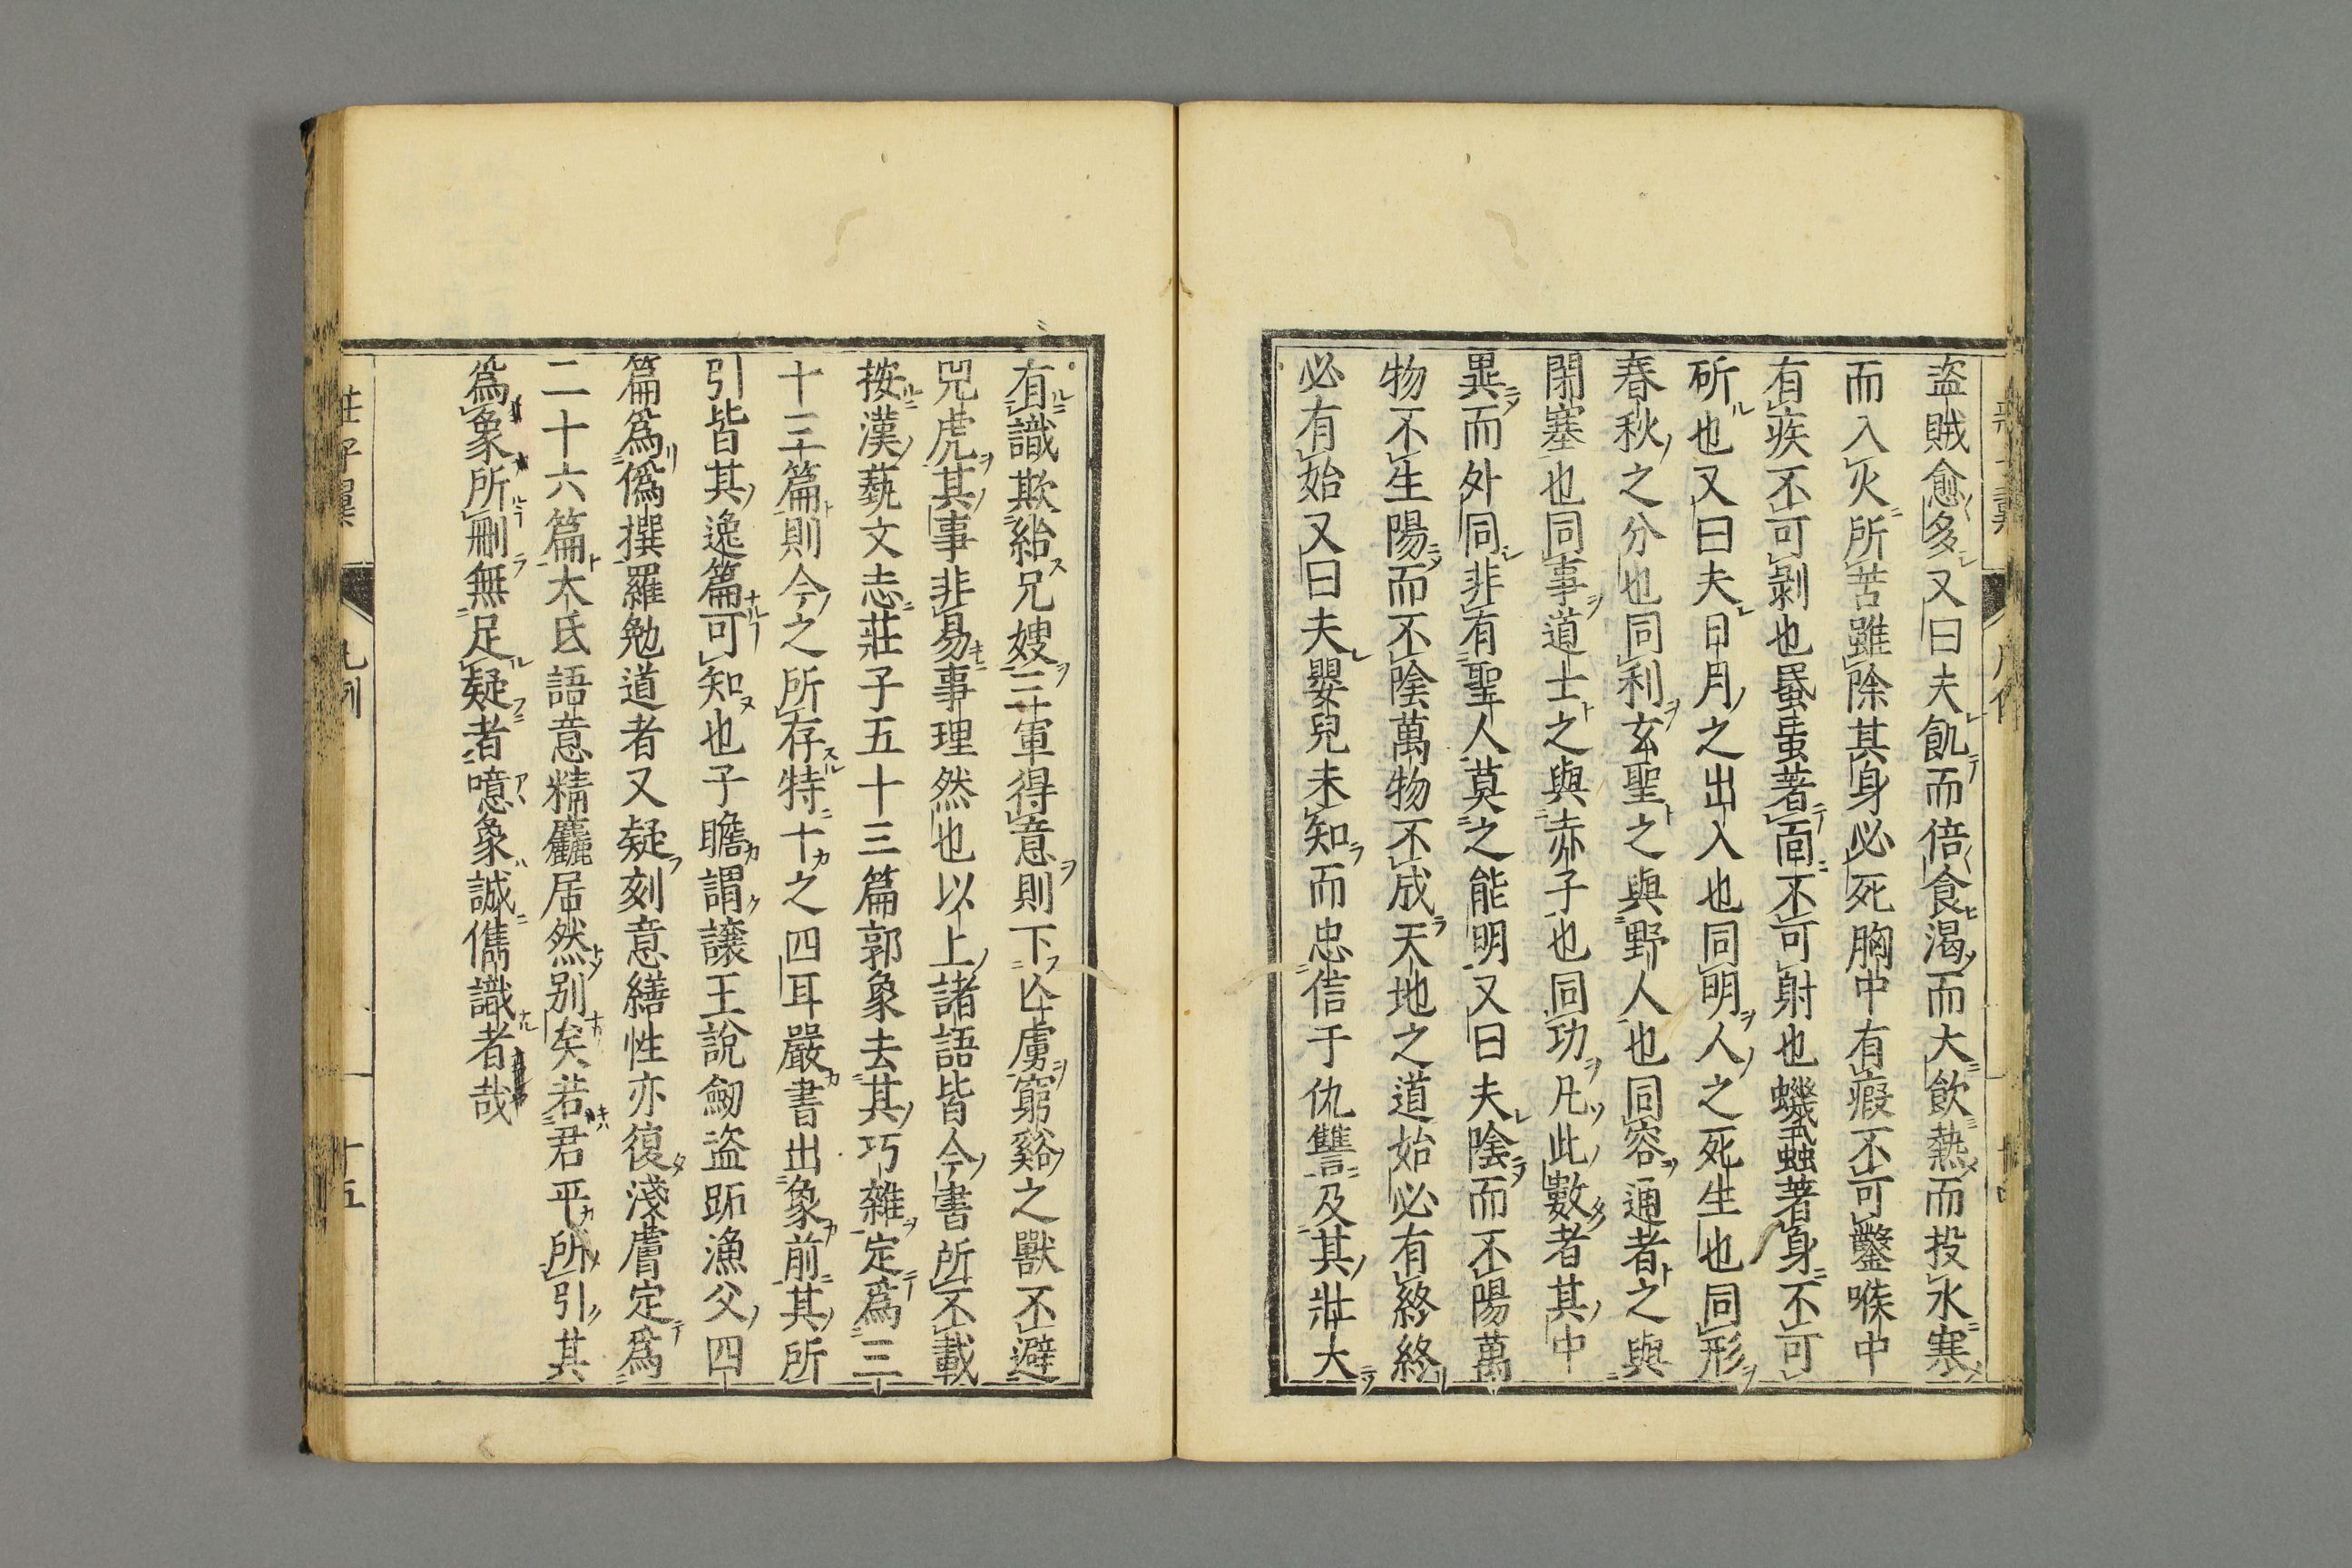 盜賊愈多又曰夫飢而倍食渴而大飲熱而投水寒
而入火所苦雖除其身必死胸中有瘕不可鑿喉中
有疾不可剝也蝱䖟著面不可射也蟣蝨著身不可
斫也又曰夫日月之出入也同明人之死生也同形
春秋之分也同利玄聖之與野人也同容通者之與
閉塞也同事道士之與赤子也同功凡此數者其中
異而外同非有聖人莫之能明又曰夫陰而不陽萬
物不生陽而不陰萬物不成天地之道始必有終終
必有始又曰夫嬰兒未知而忠信于仇讐及其壯大
有識欺紿兄嫂三軍得意則下亾虜窮谿之獸不避
兕虎其事非易事理然也以上諸語皆今書所不載
按漢藝文志莊子五十三篇郭象去其巧雜定爲三
十三篇則今之所存特十之四耳嚴書出象前其所
引皆其逸篇可知也子瞻謂讓王說劒盜跖漁父四
篇爲僞撰羅勉道者又疑刻意繕性亦復淺膚定爲
二十六篇大氐語意精麤居然别矣若君平所引其
爲象所刪無足疑者噫象誠儁識者哉
莊子翼
十五